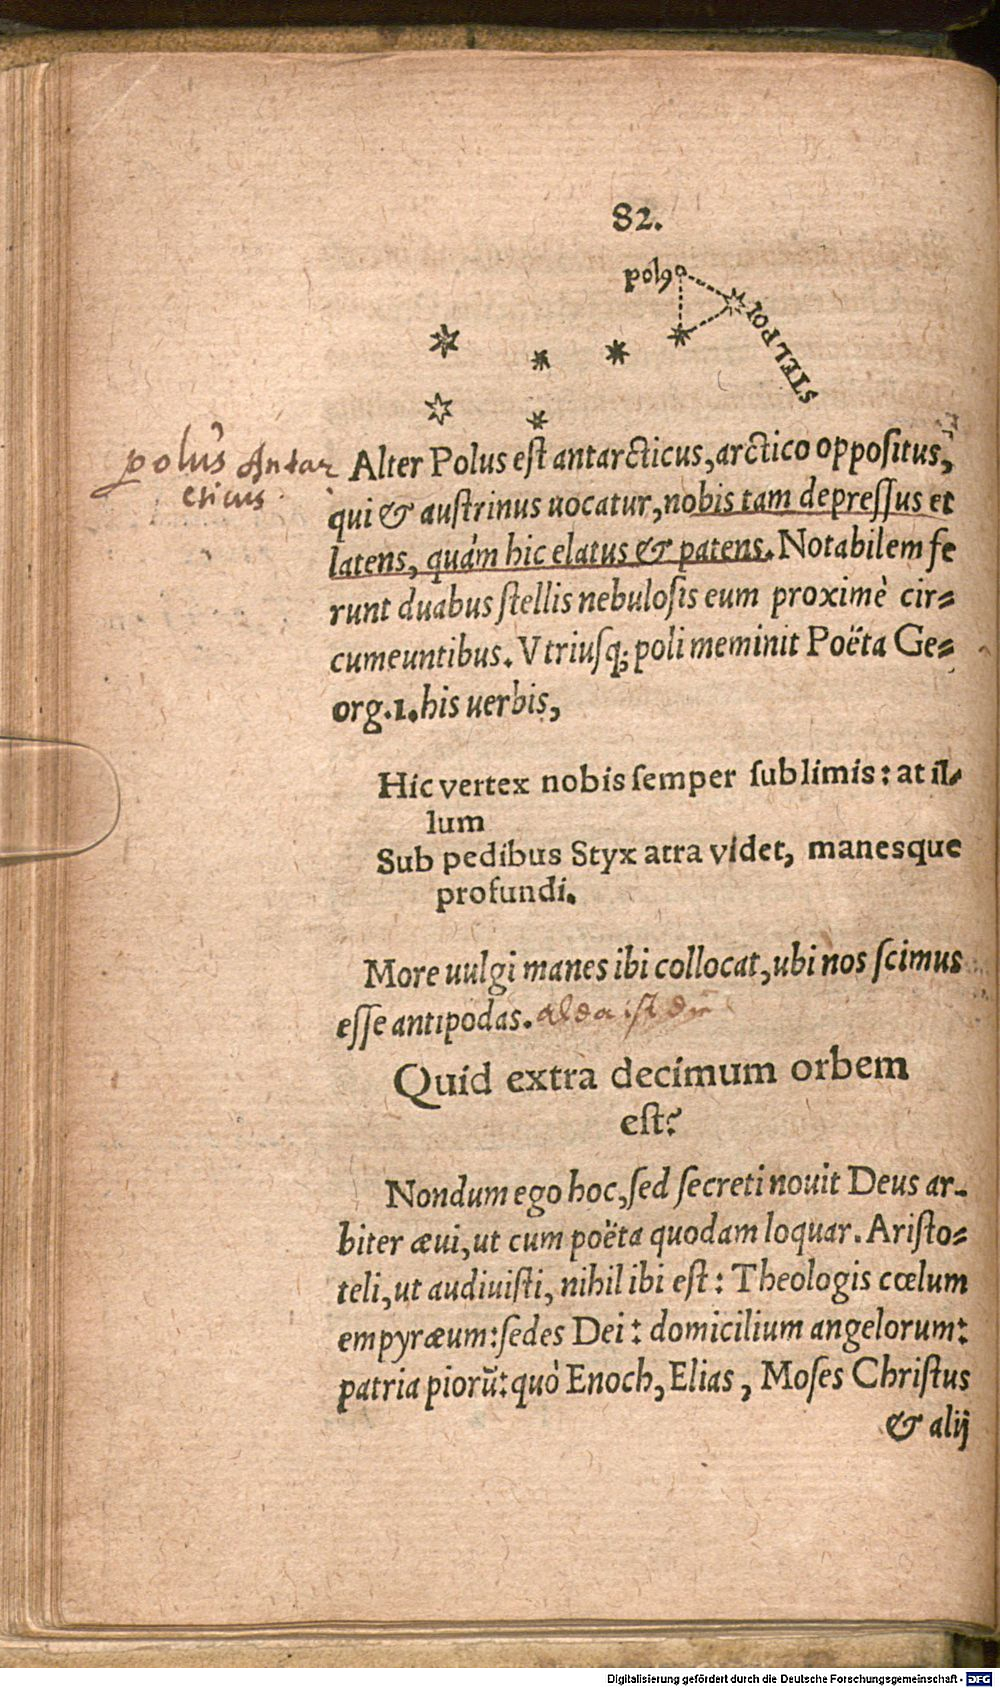 82.
polꝰ
STEL POL
polus Antar
cticus
Alter Polus eſt antarcticus, arctico oppoſitus,
qui & auſtrinus uocatur, nobis tam depreſſus et
latens, quám hic elatus & patens. Notabilem fe
runt duabus ſtellis nebuloſis eum proximè cir⸗
cumeuntibus. Vtriuſq; poli meminit Poëta Ge⸗
org.1. his uerbis,
Hic vertex nobis ſemper ſublimis: at il⸗
lum
Sub pedibus Styx atra videt, manesque
profundi.
More uulgi manes ibi collocat, ubi nos ſcimus
eſſe antipodas.
Quid extra decimum orbem
eſt?
Nondum ego hoc, ſed ſecreti nouit Deus ar⸗
biter æui, ut cum poëta quodam loquar. Ariſto⸗
teli, ut audiuiſti, nihil ibi eſt: Theologis cœlum
empyræum: ſedes Dei: domicilium angelorum:
patria piorũ: quò Enoch, Elias, Moſes Chriſtus
& alij
Digitalisierung gefördert durch die Deutsche Forschungsgemeinschaft - DFG